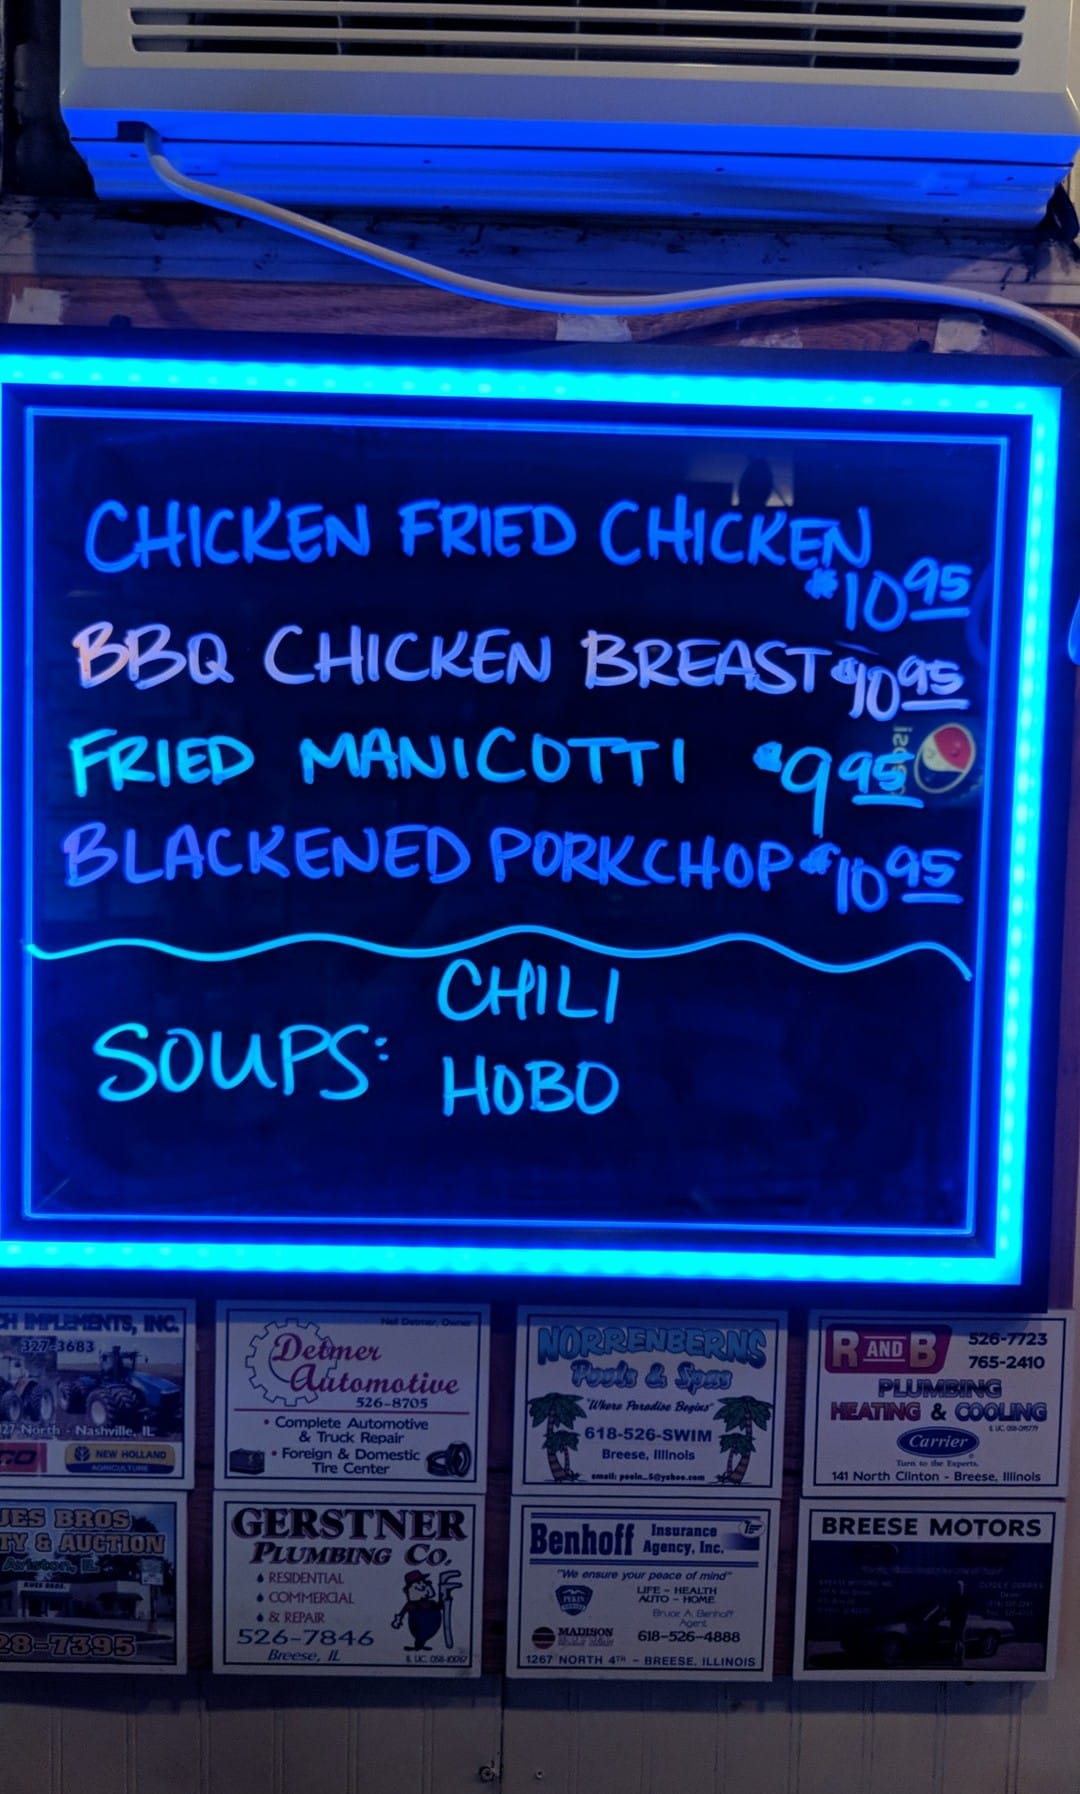 CHICKEN FRIED CHICKEN
$10.95
BBQ CHICKEN BREAST $10.95
FRIED MANICOTTI $9.95
BLACKENED PORKCHOP $10.95
SOUPS:
CHILI
HOBO
IMPLEMENTS, INC.
327-3683
North - Nashville, IL
NEW HOLLAND
AGRICULTURE
Neil Detmer, Owner
Detmer
Automotive
526-8705
• Complete Automotive
& Truck Repair
• Foreign & Domestic
Tire Center
NORRENBERNS
Pools & Spas
"Where Paradise Begins"
618-526-SWIM
Breese, Illinois
email: pools_5@yahoo.com
R AND B
526-7723
765-2410
PLUMBING
HEATING & COOLING
Carrier
Turn to the Experts.
141 North Clinton - Breese, Illinois
BROS
& AUCTION
Aviston, IL
28-7395
GERSTNER
PLUMBING CO.
RESIDENTIAL
COMMERCIAL
& REPAIR
526-7846
Breese, IL
Benhoff Insurance
Agency, Inc.
"We ensure your peace of mind"
PEKIN
LIFE - HEALTH
AUTO - HOME
Bruce A. Benhoff
Agent
MADISON
618-526-4888
1267 NORTH 4TH - BREESE, ILLINOIS
BREESE MOTORS